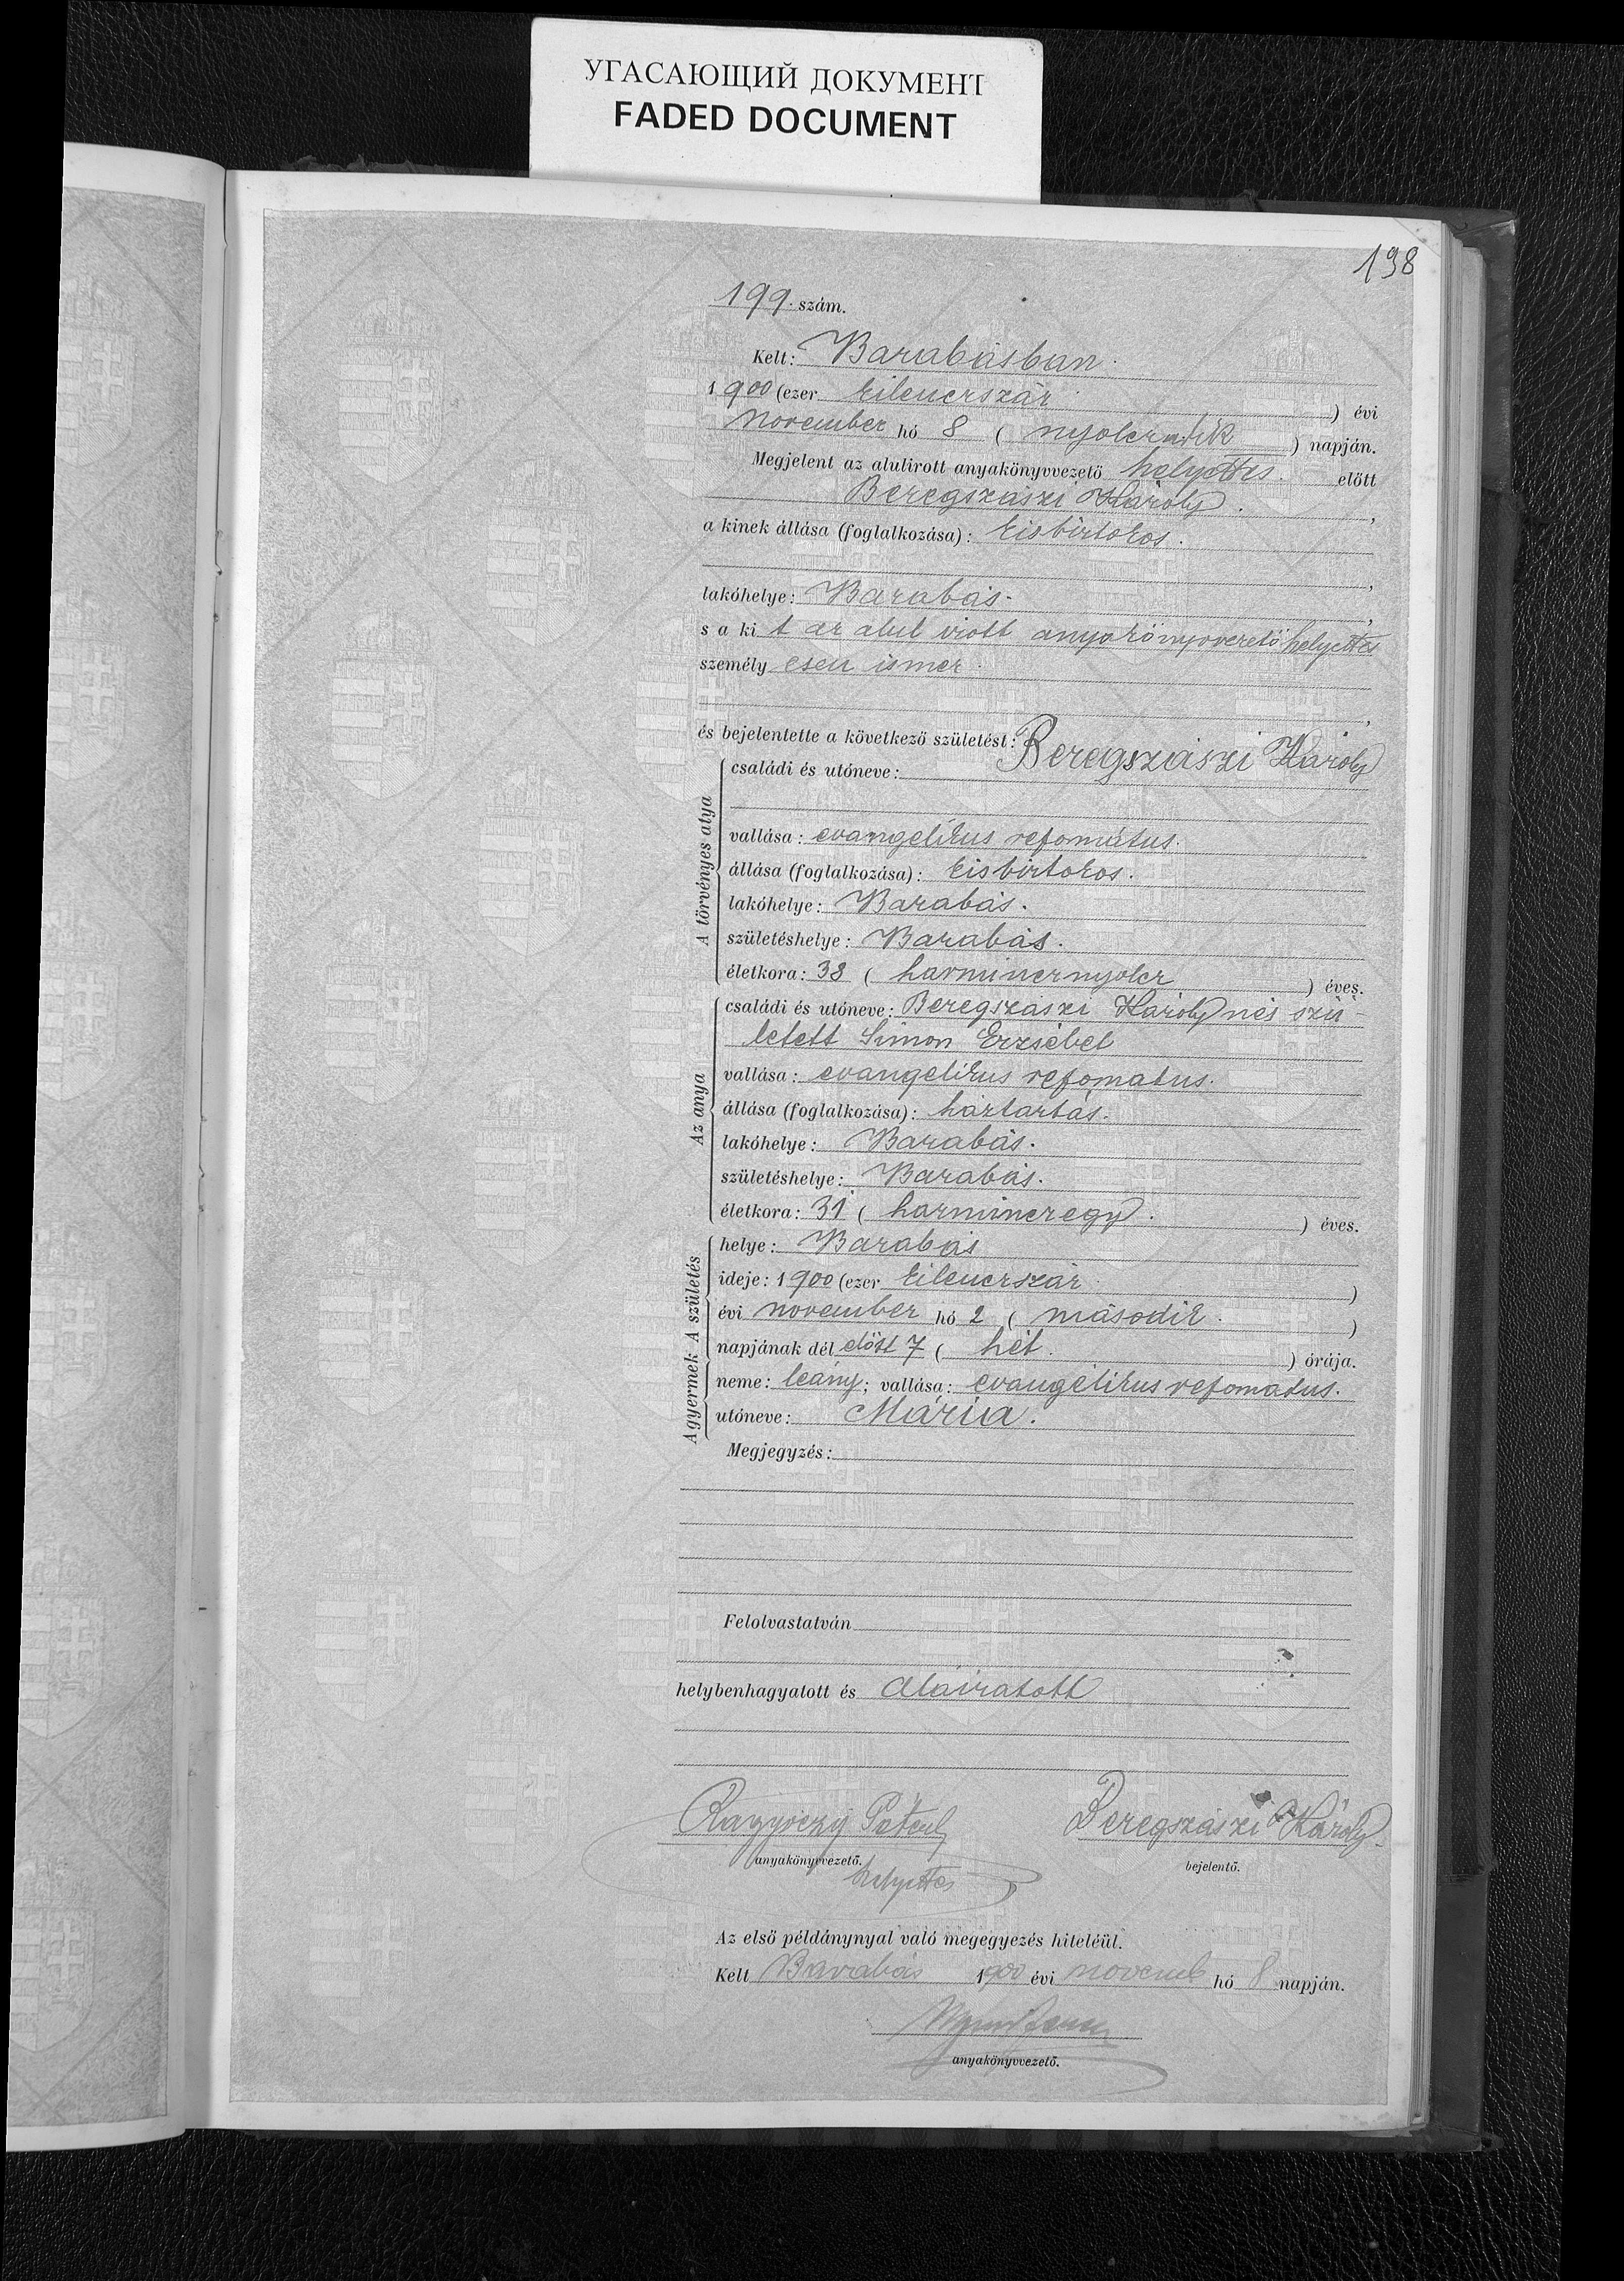 УГАСАЮЩИЙ ДОКУМЕНТ
FADED DOCUMENT
198
199. szám.
Kelt: Barabásban.
1900 (ezer kilencszáz ) évi
November hó 8 ( nyolcadik ) napján.
Megjelent az alulirott anyakönyvvezető helyettes. előtt
Beregszászi Károly.,
a kinek állása (foglalkozása): kisbirtokos.
,
lakóhelye: Barabás.,
s a ki t az alul irott anyakönyvvezető helyettes
személy esen ismer.
,
és bejelentette a következő születést:
A törvényes atya
családi és utóneve: Beregszászi Károly
vallása: evangélikus refomátus.
állása (foglalkozása): kisbirtokos.
lakóhelye: Barabás.
születéshelye: Barabás.
életkora: 38 ( harmincnyolc ) éves.
Az anya
családi és utóneve: Beregszászi Károly nés szü-
letett Simon Erzsébet
vallása: evangelikus refomatus.
állása (foglalkozása): háztartás.
lakóhelye: Barabás.
születéshelye: Barabás.
életkora: 31 ( harmincegy. ) éves.
A születés
helye: Barabás
ideje: 1900 (ezer kilencszáz )
évi november hó 2 ( második. )
napjának dél előtt 7 ( hét. ) órája.
A gyermek
neme: leány; vallása: evangélikus refomatus.
utóneve: Mária.
Megjegyzés:
Felolvastatván
helybenhagyatott és aláiratott
Beregszászi Károly
anyakönyvvezető. bejelentő.
helyettes
Az első példánynyal való megegyezés hiteléül.
Kelt Barabás 1900 évi novemb hó 8 napján.
anyakönyvvezető.